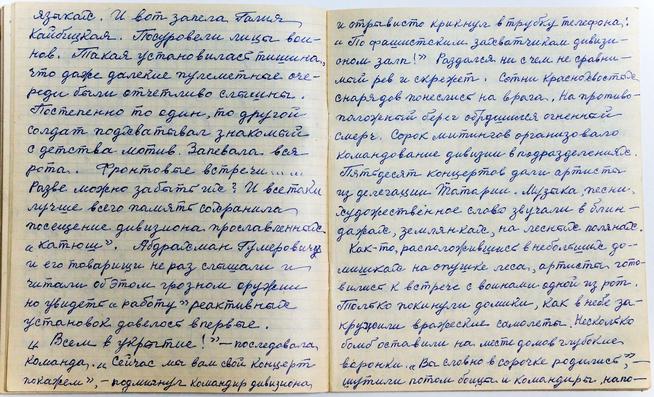 языках. И вот запела Галия
Кайбицкая. Посуровели лица вои-
нов. Такая установилась тишина,
что даже далекие пулеметные оче-
реди были отчетливо слышны.
Постепенно то один, то другой
солдат подхватывал знакомый
с детства мотив. Запевала вся
рота.. Фронтовые встречи.....
Разве можно забыть их? И все таки
лучше всего память сохранила
посещение дивизиона прославленных
„катюш”. Абдрахман Гумерович
и его товарищи не раз слышали и
читали об этом грозном оружии
но увидеть и работу" реактивных
установок довелось впервые.
„Всем в укрытие!” – последовала
команда. „Сейчас мы вам свой концерт
покажем”, – подмигнул командир дивизиона
и отрывисто крикнул в трубку телефона:
„По фашистским захватчикам дивизи-
оном залп!” Раздался ни с чем не сравни-
мый рев и скрежет. Сотни краснохвостых
снарядов понеслись на врага. На противо-
положный берег обрушился огненный
смерч. Сорок митингов организовало
командование дивизии в подразделениях.
Пятьдесят концертов дали артисты
из делегации Татарии. Музыка, песни,
художественное слово звучали в блин-
дажах, землянках, на лесных полянах.
Как-то, расположившись в небольших до-
мишках на опушке леса, артисты гото-
вились к встрече с воинами одной из рот.
Только покинули домики, как в небе за-
кружили вражеские самолеты. Несколько
бомб оставили на месте домов глубокие
воронки. „Вы словно в сорочке родились”, –
шутили потом бойцы и командиры, напо-